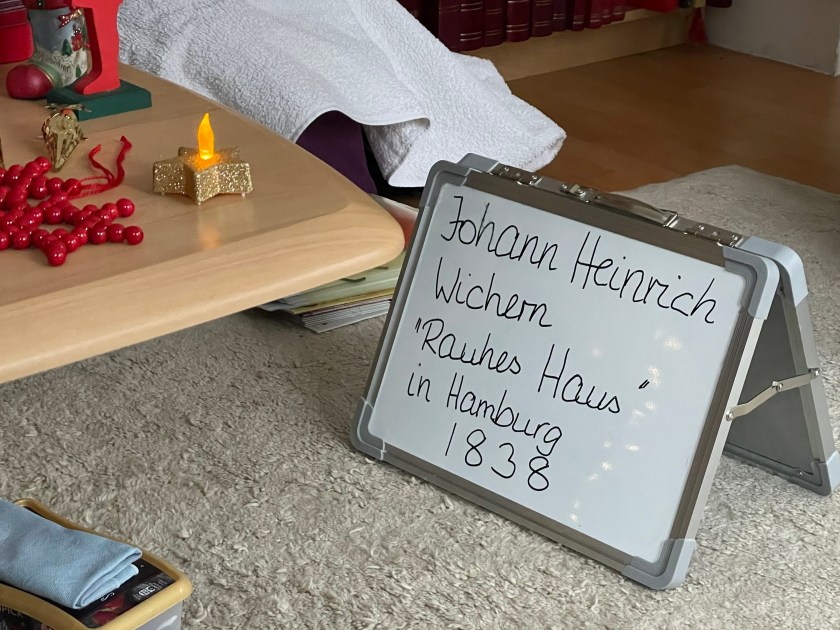 Johann Heinrich
Wichern
"Rauhes Haus"
in Hamburg
1838